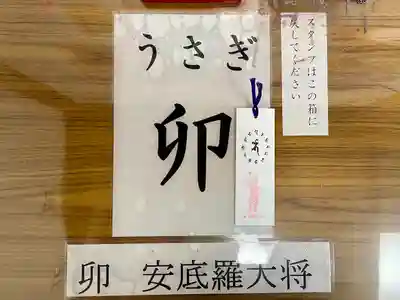 うさぎ
卯
スタンプはこの箱に
戻してください
卯 安底羅大将